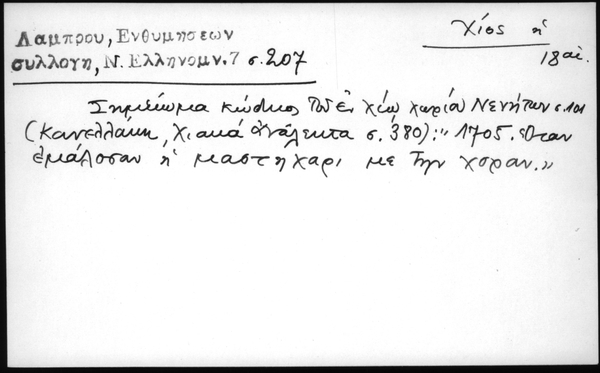 Λαμπρου, Ενθυμησεων
συλλογη, Ν. Ελληνομν. 7 σ. 207
Χίος ἡ
18 αἰ.
Σημείωμα κώδικος τοῦ ἐν Χίῳ χωρίου Νενήτων σ. 101
(Κανελλάκη, Χιακά ἀνάλεκτα σ. 380): " 1705. ὅταν
ἐμάλοσαν ἡ μαστηχαρι με την χοραν."